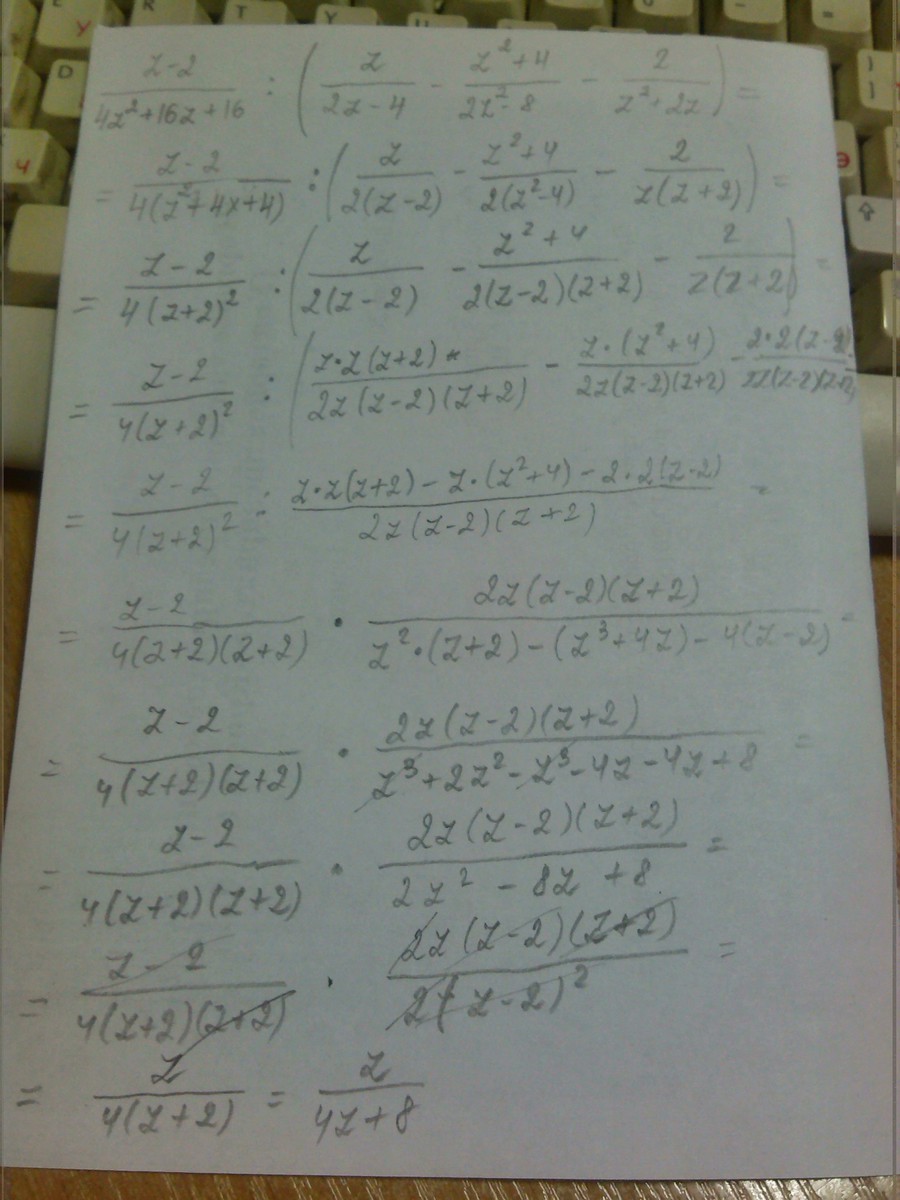 \frac{z-2}{4z^2+16z+16} : \left( \frac{z}{2z-4} - \frac{z^2+4}{2z^2-8} - \frac{2}{z^2+2z} \right) =
= \frac{z-2}{4(z^2+4x+4)} : \left( \frac{z}{2(z-2)} - \frac{z^2+4}{2(z^2-4)} - \frac{2}{z(z+2)} \right) =
= \frac{z-2}{4(z+2)^2} : \left( \frac{z}{2(z-2)} - \frac{z^2+4}{2(z-2)(z+2)} - \frac{2}{z(z+2)} \right) =
= \frac{z-2}{4(z+2)^2} : \left( \frac{z \cdot z(z+2)}{2z(z-2)(z+2)} - \frac{z \cdot (z^2+4)}{2z(z-2)(z+2)} - \frac{2 \cdot 2(z-2)}{2z(z-2)(z+2)}
= \frac{z-2}{4(z+2)^2} : \frac{z \cdot z(z+2) - z \cdot (z^2+4) - 2 \cdot 2(z-2)}{2z(z-2)(z+2)} =
= \frac{z-2}{4(z+2)(z+2)} \cdot \frac{2z(z-2)(z+2)}{z^2 \cdot (z+2) - (z^3+4z) - 4(z-2)} =
= \frac{z-2}{4(z+2)(z+2)} \cdot \frac{2z(z-2)(z+2)}{z^3+2z^2-z^3-4z-4z+8} =
= \frac{z-2}{4(z+2)(z+2)} \cdot \frac{2z(z-2)(z+2)}{2z^2-8z+8} =
= \frac{z-2}{4(z+2)(z+2)} \cdot \frac{2z(z-2)(z+2)}{2(z-2)^2} =
= \frac{z}{4(z+2)} = \frac{z}{4z+8}